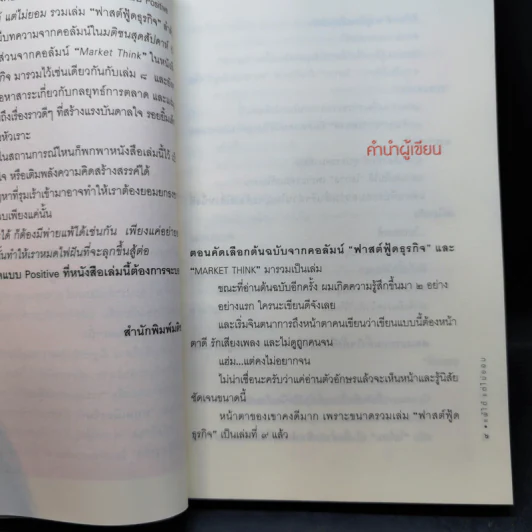 Positive
แต่ไม่ยอม รวมเล่ม “ฟาสต์ฟู้ดธุรกิจ”
บทความจากคอลัมน์ในมติชนสุดสัปดาห์
ส่วนจากคอลัมน์ “Market Think” ในหนัง
กิจ มารวมไว้เช่นเดียวกันกับเล่ม ๘ และ
อหาสาระเกี่ยวกับกลยุทธ์การตลาด และ
ถึงเรื่องราวดีๆ ที่สร้างแรงบันดาลใจ รอยยิ้ม
หัวเราะ
ในสถานการณ์ไหนก็พกพาหนังสือเล่มนี้ไว้
ใจ หรือเติมพลังความคิดสร้างสรรค์ได้
ที่รุมเร้าเข้ามาอาจทำให้เราต้องยอมยกธง
บเพียงแค่นั้น
ได้ ก็ต้องมีพ่ายแพ้ได้เช่นกัน เพียงแค่อย่าย
ทำให้เราหมดไฟฝันที่จะลุกขึ้นสู้ต่อ
แบบ Positive ที่หนังสือเล่มนี้ต้องการจะบ
สำนักพิมพ์มติ
คำนำผู้เขียน
ตอนคัดเลือกต้นฉบับจากคอลัมน์ “ฟาสต์ฟู้ดธุรกิจ” และ
“MARKET THINK” มารวมเป็นเล่ม
ขณะที่อ่านต้นฉบับอีกครั้ง ผมเกิดความรู้สึกขึ้นมา ๒ อย่าง
อย่างแรก ใครนะเขียนดีจังเลย
และเริ่มจินตนาการถึงหน้าตาคนเขียนว่าเขียนแบบนี้ต้องหน้า
ตาดี รักเสียงเพลง และไม่ดูถูกคนจน
แฮ่ม...แต่คงไม่อยากจน
ไม่น่าเชื่อนะครับว่าแค่อ่านตัวอักษรแล้วจะเห็นหน้าและรู้นิสัย
ชัดเจนขนาดนี้
หน้าตาของเขาคงดีมาก เพราะขนาดรวมเล่ม “ฟาสต์ฟู้ด
ธุรกิจ” เป็นเล่มที่ ๙ แล้ว